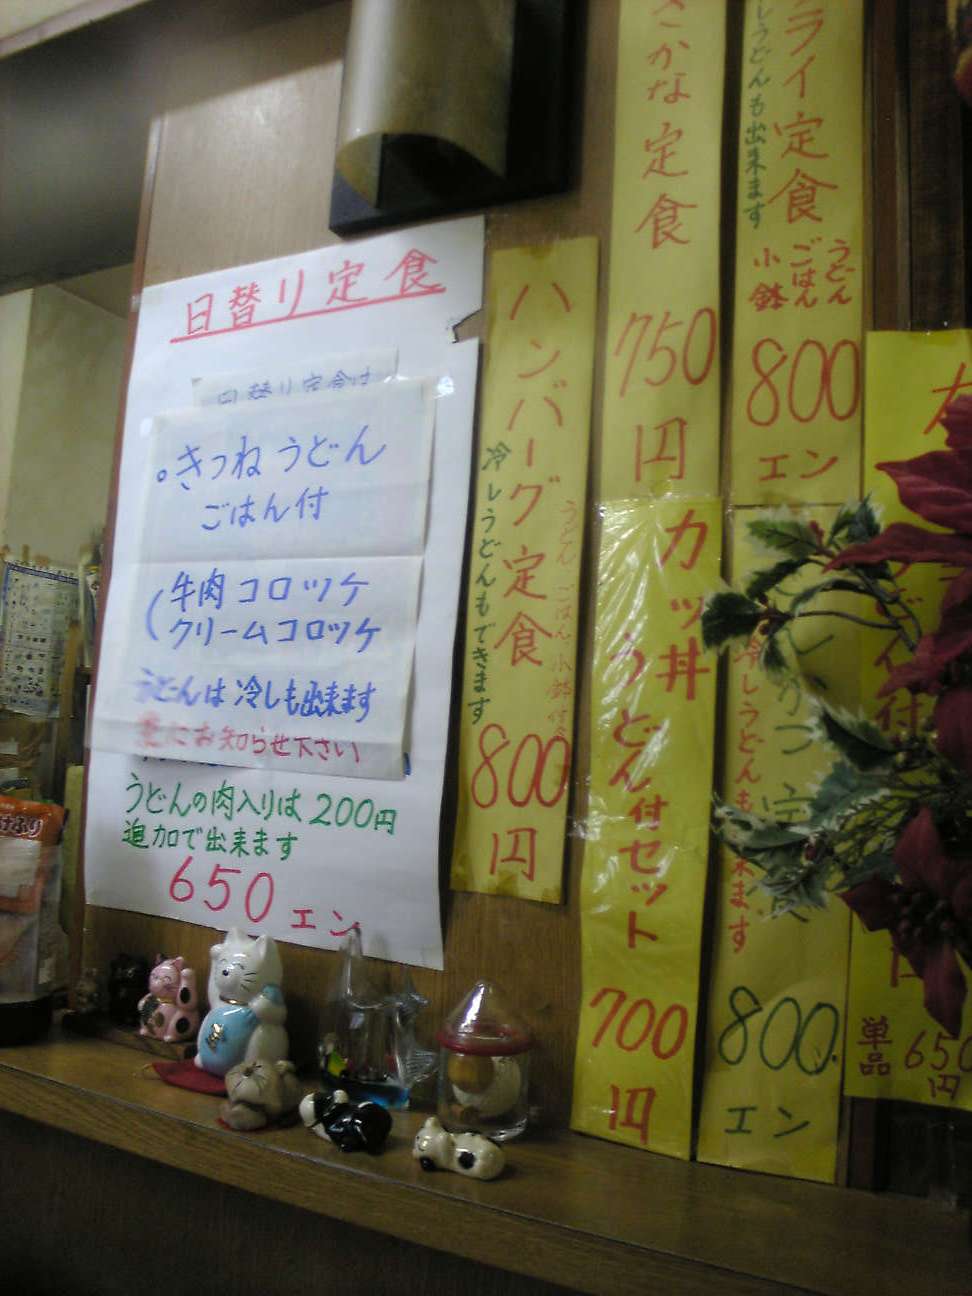 日替り定食
日替り定食は
。きつねうどん
ごはん付
(牛肉コロッケ
クリームコロッケ
うどんは冷しも出来ます
にお知らせ下さい
うどんの肉入りは200円
追加で出来ます
650エン
ハンバーグ定食
冷しうどんもできます
うどん ごはん 小鉢付
800円
さかな定食
750円
カツ丼
うどん付セット
700円
フライ定食
しうどんも出来ます
うどん
ごはん
小鉢
800
エン
冷しうどんも
来ます
800
エン
ん付
単品 650円